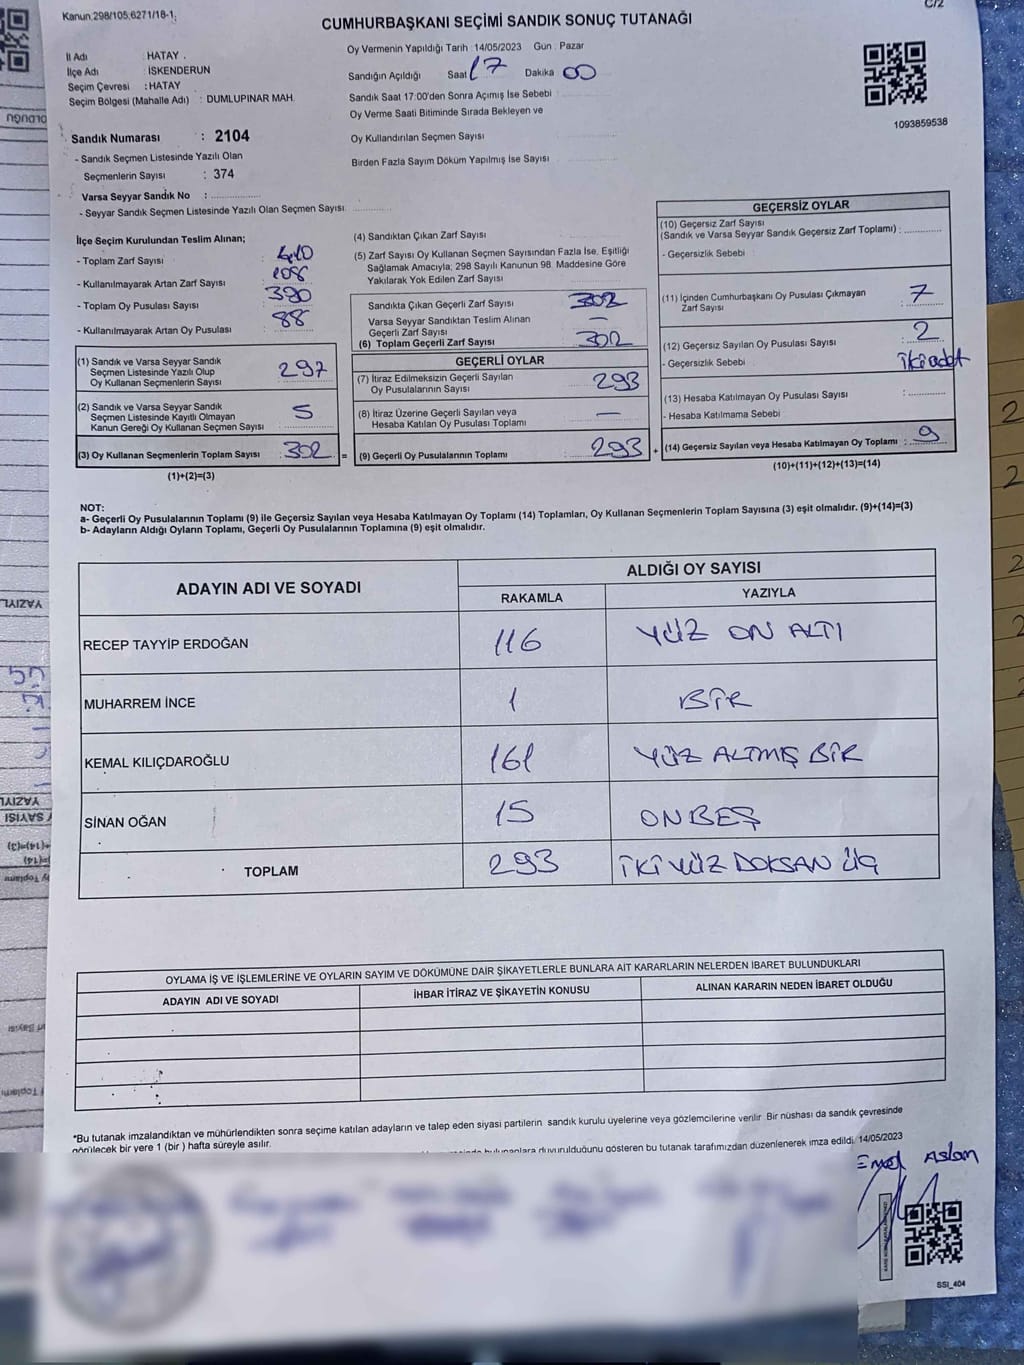 Kanun:298/105;6271/18-1;
C/2
CUMHURBAŞKANI SEÇİMİ SANDIK SONUÇ TUTANAĞI
İl Adı : HATAY
İlçe Adı : İSKENDERUN
Seçim Çevresi : HATAY
Seçim Bölgesi (Mahalle Adı) : DUMLUPINAR MAH.
Oy Vermenin Yapıldığı Tarih : 14/05/2023 Gün : Pazar
Sandığın Açıldığı Saat 17 Dakika 00
Sandık Saat 17:00'den Sonra Açımış İse Sebebi
Oy Verme Saati Bitiminde Sırada Bekleyen ve
Oy Kullandırılan Seçmen Sayısı
Birden Fazla Sayım Döküm Yapılmış İse Sayısı
1093859538
Sandık Numarası : 2104
- Sandık Seçmen Listesinde Yazılı Olan
Seçmenlerin Sayısı : 374
Varsa Seyyar Sandık No :
- Seyyar Sandık Seçmen Listesinde Yazılı Olan Seçmen Sayısı
İlçe Seçim Kurulundan Teslim Alınan;
- Toplam Zarf Sayısı : 410
- Kullanılmayarak Artan Zarf Sayısı : 108
- Toplam Oy Pusulası Sayısı : 390
- Kullanılmayarak Artan Oy Pusulası : 88
(1) Sandık ve Varsa Seyyar Sandık
Seçmen Listesinde Yazılı Olup
Oy Kullanan Seçmenlerin Sayısı : 297
(2) Sandık ve Varsa Seyyar Sandık
Seçmen Listesinde Kayıtlı Olmayan
Kanun Gereği Oy Kullanan Seçmen Sayısı : 5
(3) Oy Kullanan Seçmenlerin Toplam Sayısı : 302 =
(1)+(2)=(3)
(4) Sandıktan Çıkan Zarf Sayısı
(5) Zarf Sayısı Oy Kullanan Seçmen Sayısından Fazla İse, Eşitliği
Sağlamak Amacıyla; 298 Sayılı Kanunun 98. Maddesine Göre
Yakılarak Yok Edilen Zarf Sayısı
Sandıkta Çıkan Geçerli Zarf Sayısı 302
Varsa Seyyar Sandıktan Teslim Alınan
Geçerli Zarf Sayısı —
(6) Toplam Geçerli Zarf Sayısı 302
GEÇERLİ OYLAR
(7) İtiraz Edilmeksizin Geçerli Sayılan
Oy Pusulalarının Sayısı 293
(8) İtiraz Üzerine Geçerli Sayılan veya
Hesaba Katılan Oy Pusulaları Toplamı —
(9) Geçerli Oy Pusulalarının Toplamı 293 +
GEÇERSİZ OYLAR
(10) Geçersiz Zarf Sayısı
(Sandık ve Varsa Seyyar Sandık Geçersiz Zarf Toplamı) :
- Geçersizlik Sebebi
(11) İçinden Cumhurbaşkanı Oy Pusulası Çıkmayan
Zarf Sayısı : 7
(12) Geçersiz Sayılan Oy Pusulası Sayısı : 2
- Geçersizlik Sebebi : iki adet
(13) Hesaba Katılmayan Oy Pusulası Sayısı :
- Hesaba Katılmama Sebebi
(14) Geçersiz Sayılan veya Hesaba Katılmayan Oy Toplamı : 9
(10)+(11)+(12)+(13)=(14)
NOT:
a- Geçerli Oy Pusulalarının Toplamı (9) ile Geçersiz Sayılan veya Hesaba Katılmayan Oy Toplamı (14) Toplamları, Oy Kullanan Seçmenlerin Toplam Sayısına (3) eşit olmalıdır. (9)+(14)=(3)
b- Adayların Aldığı Oyların Toplamı, Geçerli Oy Pusulalarının Toplamına (9) eşit olmalıdır.
ADAYIN ADI VE SOYADI
ALDIĞI OY SAYISI
RAKAMLA YAZIYLA
RECEP TAYYİP ERDOĞAN 116 YÜZ ON ALTI
MUHARREM İNCE 1 BİR
KEMAL KILIÇDAROĞLU 161 YÜZ ALTMIŞ BİR
SİNAN OĞAN 15 ONBEŞ
TOPLAM 293 İKİ YÜZ DOKSAN ÜÇ
OYLAMA İŞ VE İŞLEMLERİNE VE OYLARIN SAYIM VE DÖKÜMÜNE DAİR ŞİKAYETLERLE BUNLARA AİT KARARLARIN NELERDEN İBARET BULUNDUKLARI
ADAYIN ADI VE SOYADI İHBAR İTİRAZ VE ŞİKAYETİN KONUSU ALINAN KARARIN NEDEN İBARET OLDUĞU
*Bu tutanak imzalandıktan ve mühürlendikten sonra seçime katılan adayların ve talep eden siyasi partilerin sandık kurulu üyelerine veya gözlemcilerine verilir. Bir nüshası da sandık çevresinde
görülecek bir yere 1 (bir ) hafta süreyle asılır.
duyurulduğunu gösteren bu tutanak tarafımızdan düzenlenerek imza edildi. 14/05/2023
Emel Aslan
SSI_404